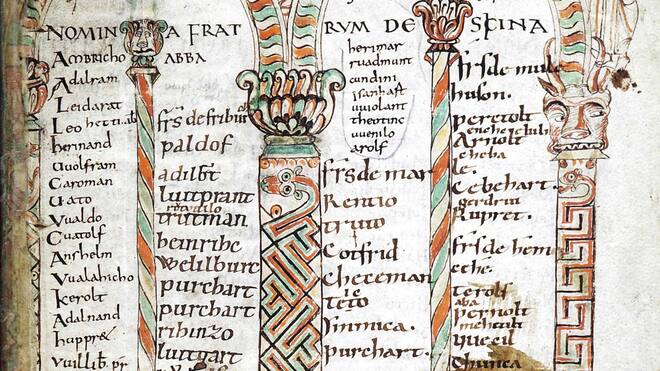 NOMINA FRATRUM DE SCINA
Ambricho
ABBA
Adalram
Leidarat
hernand
uuolfram
Caroman
Uato
Uualdo
Cuatolf
Anshelm
Uualahicho
Kerolt
Adalnand
huppret
uuillib. pr
frs de fribur
paldof
adilbt
luttprant
trutman
heinrihc
welilburc
purchart
purchart
ribinzo
luttgart
herimar
ruadmunt
cundini
isanhaft
uuolant
theotinc
uuenilo
arolf
frs de mar
Rentio
truto
Cotfrid
Checeman
teto
Immica.
purchart.
frs de mule
huson.
peretolt
Arnolt
cheba
le.
Cebehart.
gerdrut
Rupret.
frs de heme
eche.
terolf
aba
pernolt
mehtilt
Chunca